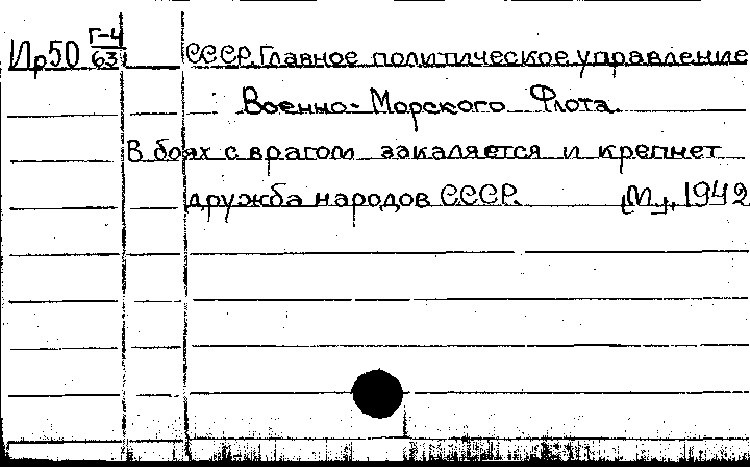 Ир50 Г-4/63 СССР. Главное политическое управление
Военно-Морского Флота.
В боях с врагом закаляется и крепнет
дружба народов СССР. [М.], 1942